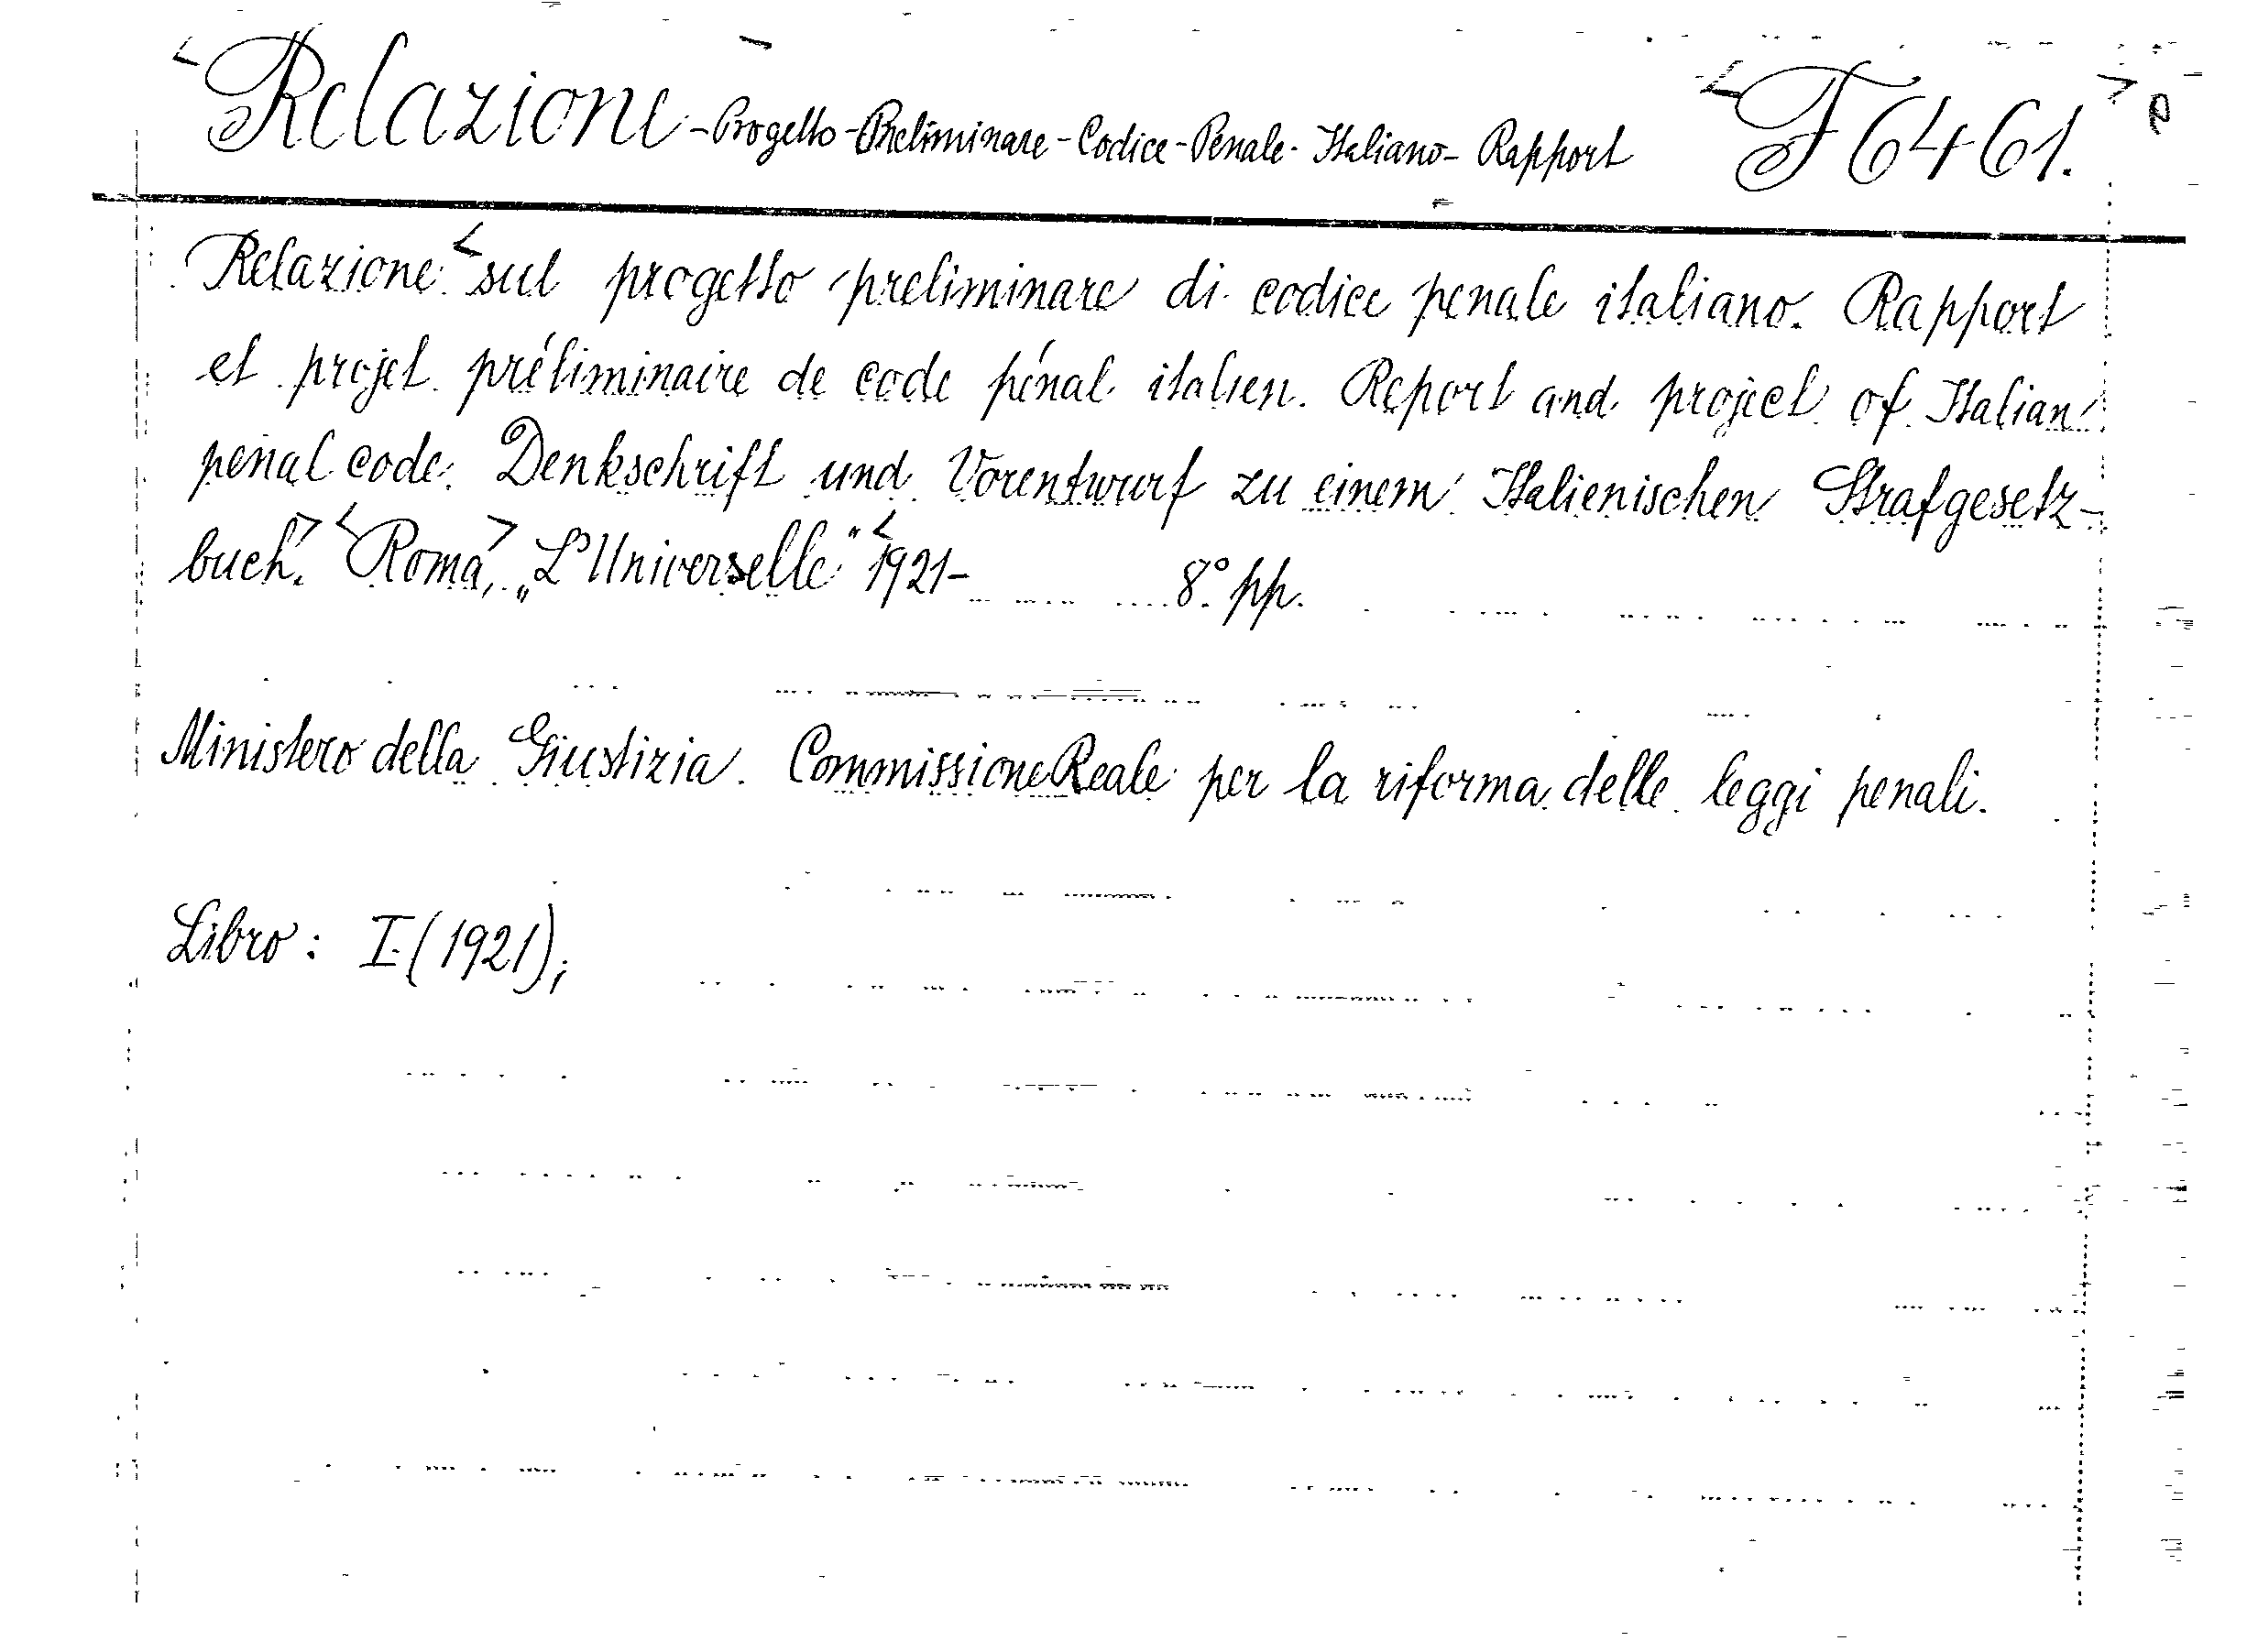 Relazione - Progetto - Preliminare - Codice - Penale - Italiano - Rapport F 6461.
Relazione sul progetto preliminare di codice penale italiano. Rapport
et projet préliminaire de code pénal italien. Report and project of Italian
penal code. Denkschrift und Vorentwurf zu einem Italienischen Strafgesetz-
buch. Roma, „L'Universelle" 1921- 8° pp.
Ministero della Giustizia. Commissione Reale per la riforma delle leggi penali.
Libro: I (1921);